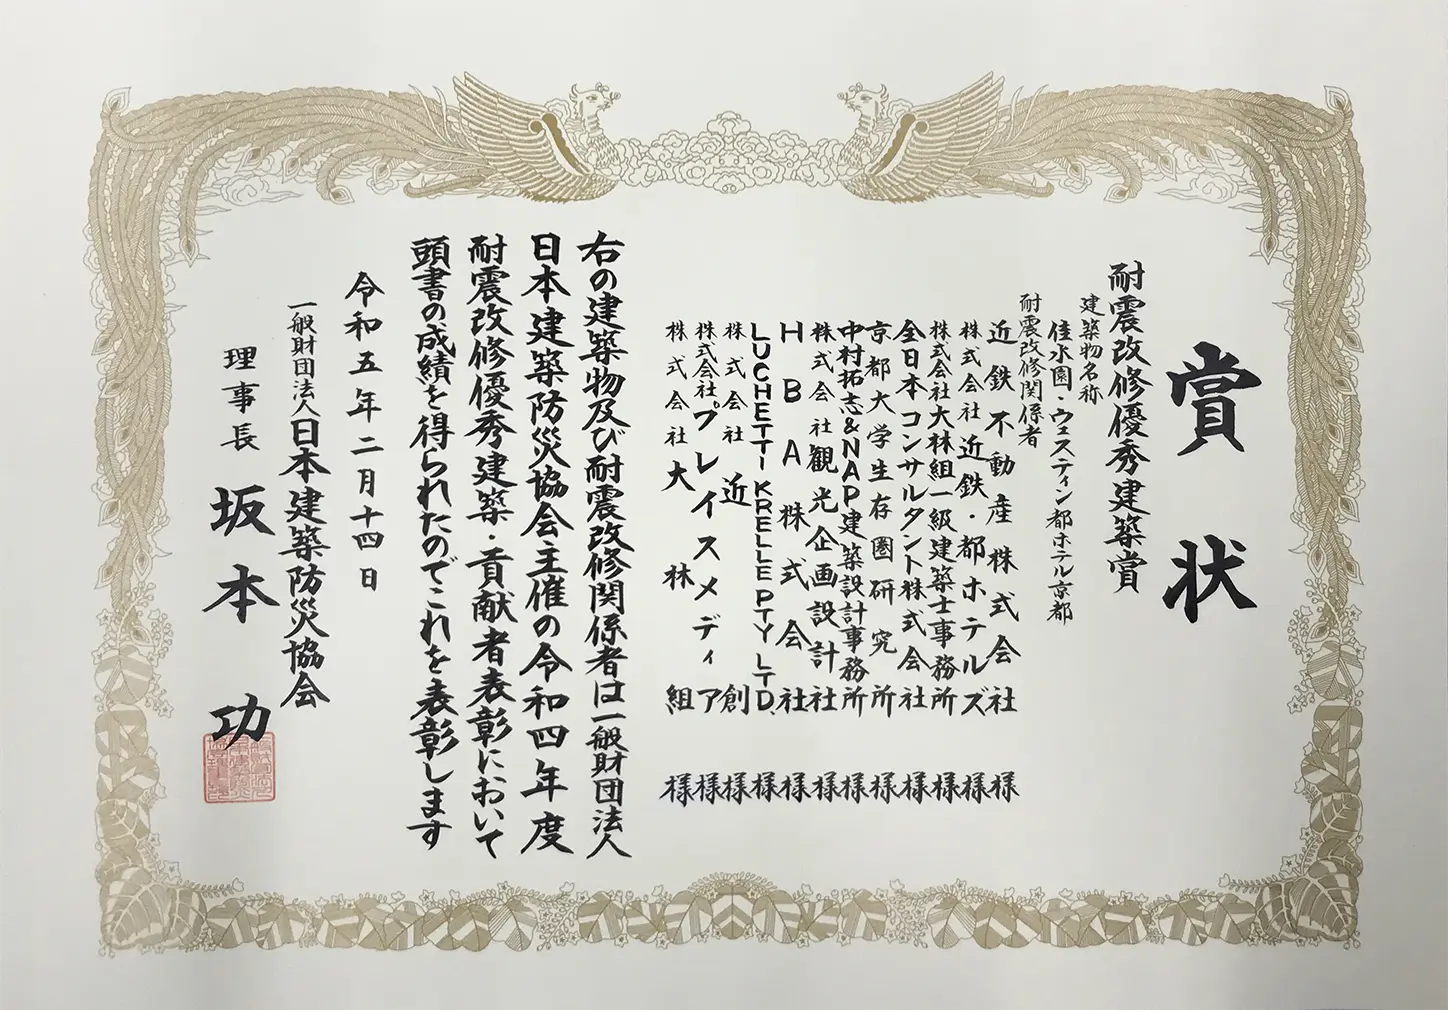 賞状
耐震改修優秀建築賞
建築物名称
佳水園・ウェスティン都ホテル京都
耐震改修関係者
近鉄不動産株式会社 様
株式会社近鉄・都ホテルズ 様
株式会社大林組一級建築士事務所 様
全日本コンサルタント株式会社 様
京都大学生存圏研究所 様
中村拓志&NAP建築設計事務所 様
株式会社観光企画設計社 様
HBA株式会社 様
LUCHETTI KRELLE PTY LTD. 様
株式会社近創 様
株式会社プレイスメディア 様
株式会社大林組 様
右の建築物及び耐震改修関係者は一般財団法人
日本建築防災協会主催の令和四年度
耐震改修優秀建築・貢献者表彰において
頭書の成績を得られたのでこれを表彰します
令和五年二月十四日
一般財団法人日本建築防災協会
理事長 坂本功